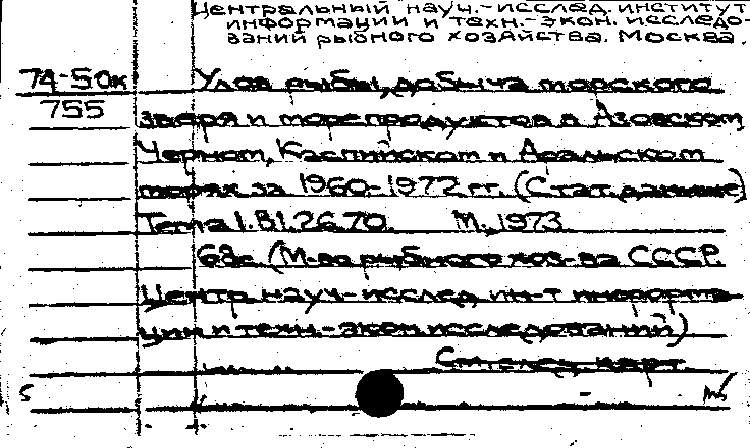 Центральный науч.-исслед. институт
информации и техн.-экон. исследо-
ваний рыбного хозяйства. Москва.
74-50к Улов рыбы, добыча морского
755 зверя и морепродуктов в Азовском,
Черном, Каспийском и Аральском
морях за 1960-1972 гг. (Стат. данные)
Тема 1.B1.26.70. М., 1973.
68с. (М-во рыбного хоз-ва СССР.
Центр. науч.-исслед. ин-т информа-
ции и техн.-экон. исследований)
См. след. карт.
5